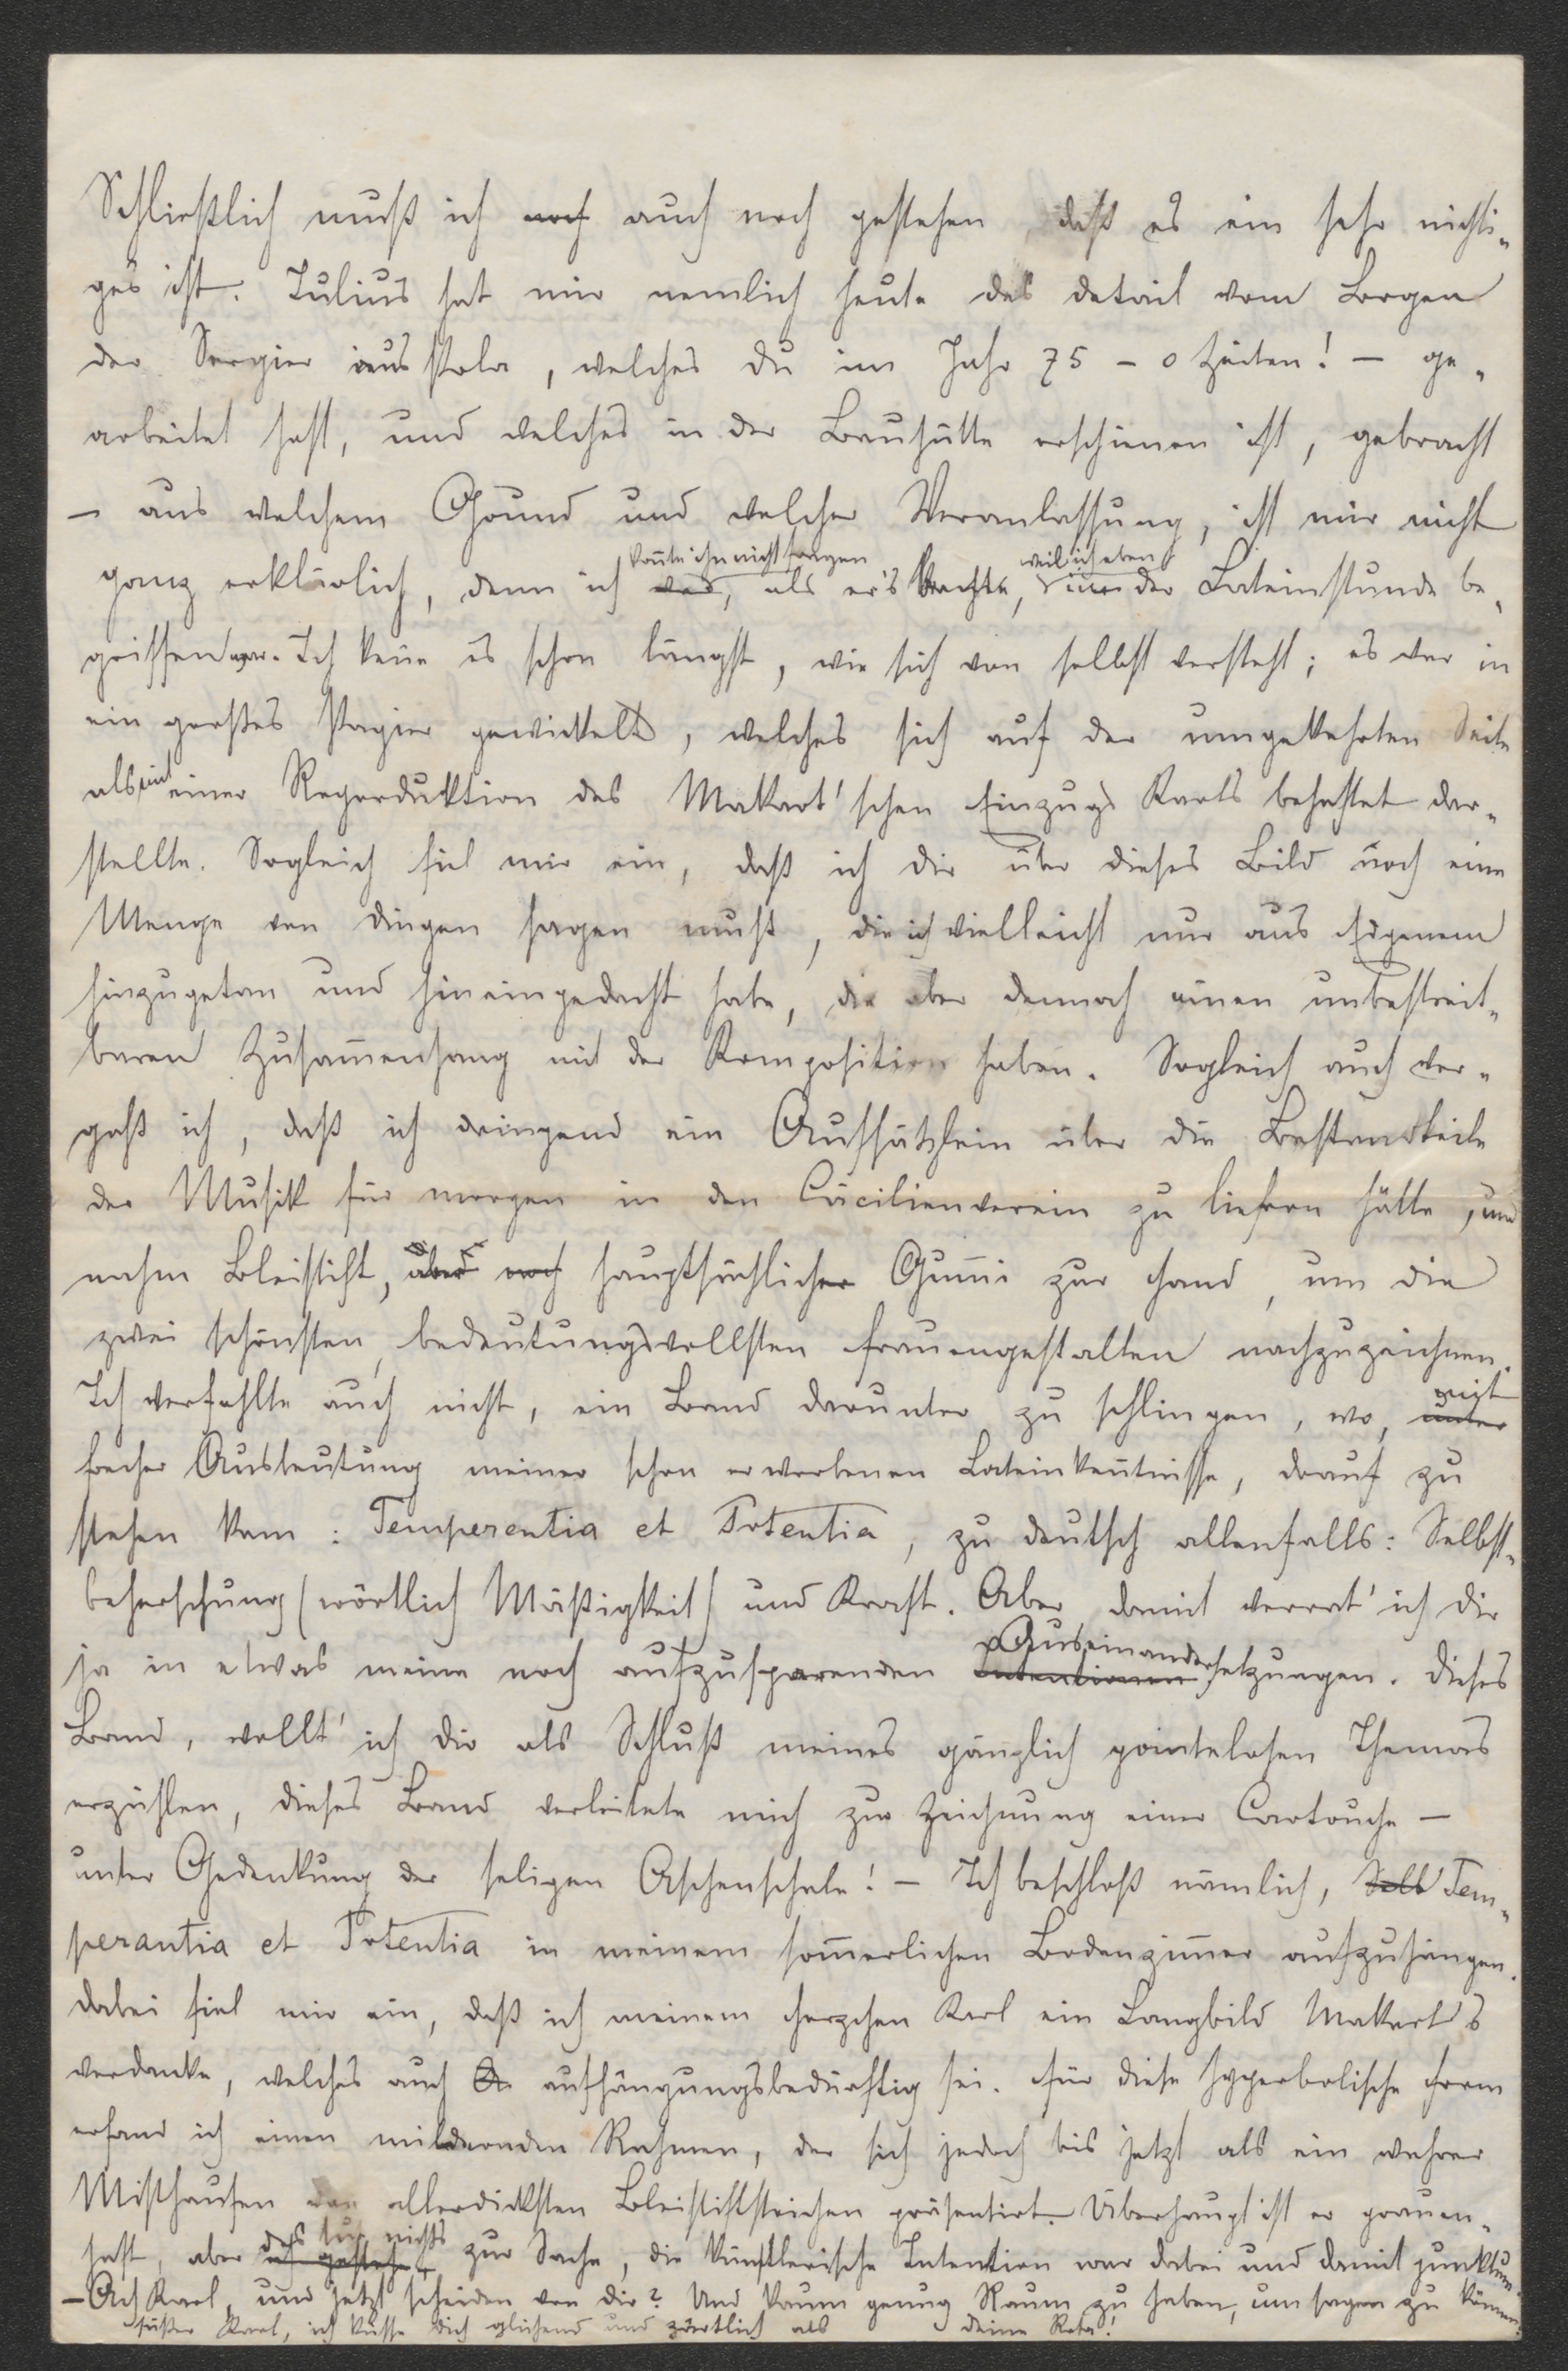 Schließlich muß ich noch auch noch gestehen, daß es ein sehr nichti-
ges ist. Julius hat mir nemlich heute das Detail vom Bogen
der Sergier aus Pola, welches Du im Jahr 75 – o Zeiten! – ge-
arbeitet hast, und welches in der Bauhütte erschienen ist, gebracht
– aus welchem Grund und welcher Veranlassung, ist mir nicht
koñte ihn nicht fragen weil ich eben
ganz erklärlich, denn ich war, als er's brachte, in der Lateinstunde be-
griffen war. Ich keñe es schon längst, wie sich von selbst versteht; es war in
ein großes Papier gewickelt, welches sich auf der umgekehrten Seite
als mit einer Reproduktion des Makart'schen Einzugs Karls behaftet dar-
stellte. Sogleich fiel mir ein, daß ich Dir über dieses Bild noch eine
Menge von Dingen sagen muß, die ich vielleicht nur aus Eigenem
hinzugetan und hineingedacht habe, die aber dennoch einen unbestreit-
baren Zusam̄enhang mit der Komposition haben. Sogleich auch ver-
gaß ich, daß ich dringend ein Aufsätzlein über die Bestandteile
der Musik für morgen in den Cäcilienverein zu liefern hätte, und
nahm Bleistift, aber noch hauptsächlicher Gum̄i zur Hand, um die
zwei schönsten, bedeutungsvollsten Frauengestalten nachzuzeichnen.
mit
Ich verfehlte auch nicht, ein Band darunter zu schlingen, wo, unter
frecher Ausbeutung meiner schon erworbenen Lateinkeñtnisse, darauf zu
stehen kam: Temperentia et Potentia, zu deutsch allenfalls: Selbst-
beherschung (wörtlich Mäßigkeit) und Kraft. Aber damit verrat' ich Dir
Auseinandersetzungen.
ja in etwas meine noch aufzusparenden Intentionen Dieses
Band, wollt' ich Dir als Schluß meines gänzlich pointelosen Themas
erzählen, dieses Band verleitete mich zur Zeichnung einer Cartouche –
unter Gedenkung der seligen Aschenschale! – Ich beschloß nämlich, Selb Tem-
perantia et Potentia in meinem som̄erlichen Bodenzim̄er aufzuhängen.
Dabei fiel mir ein, daß ich meinem Herzchen Karl ein Langbild Makart's
verdanke, welches auch A aufhängungsbedürftig sei. Für diese hyperbolische Form
erfand ich einen mildernden Rahmen, der sich jedoch bis jetzt als ein wahrer
Misthaufen von allerdicksten Bleistiftstrichen präsentirt. Überhaupt ist er grauen-
das tut nichts
haft, aber ich gestehe zur Sache, die künstlerische Intention war dabei und damit punktum.
– Ach Karl, und jetzt scheiden von Dir? Und kaum genug Raum zu haben, um sagen zu können:
süßer Karl, ich küsse Dich glühend und zärtlich als Deine Rosa!